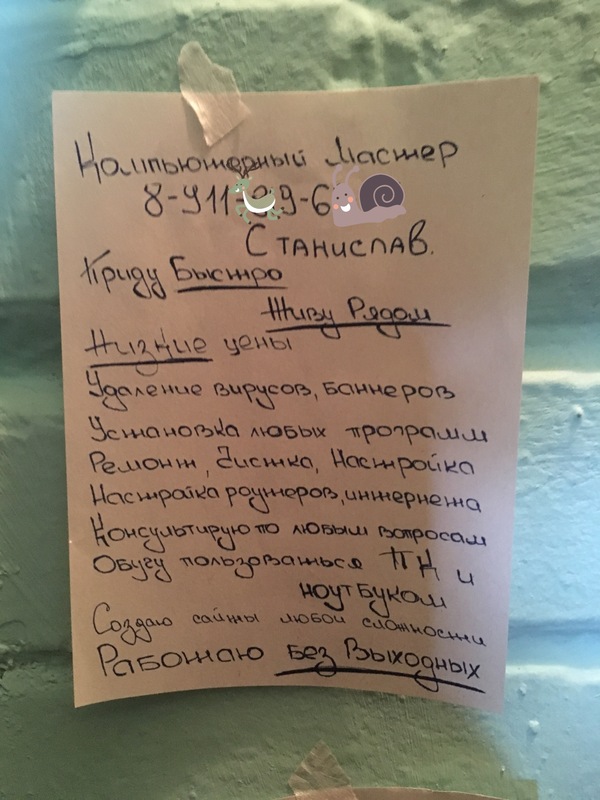 Компьютерный Мастер
8-911-
Станислав.
Приду Быстро
Живу Рядом
Низкие цены
Удаление вирусов, баннеров
Установка любых программ
Ремонт, Чистка, Настройка
Настройка роутеров, интернета
Консультирую по любым вопросам
Обучу пользоваться ПК и
ноутбуком
Создаю сайты любой сложности
Работаю Без Выходных